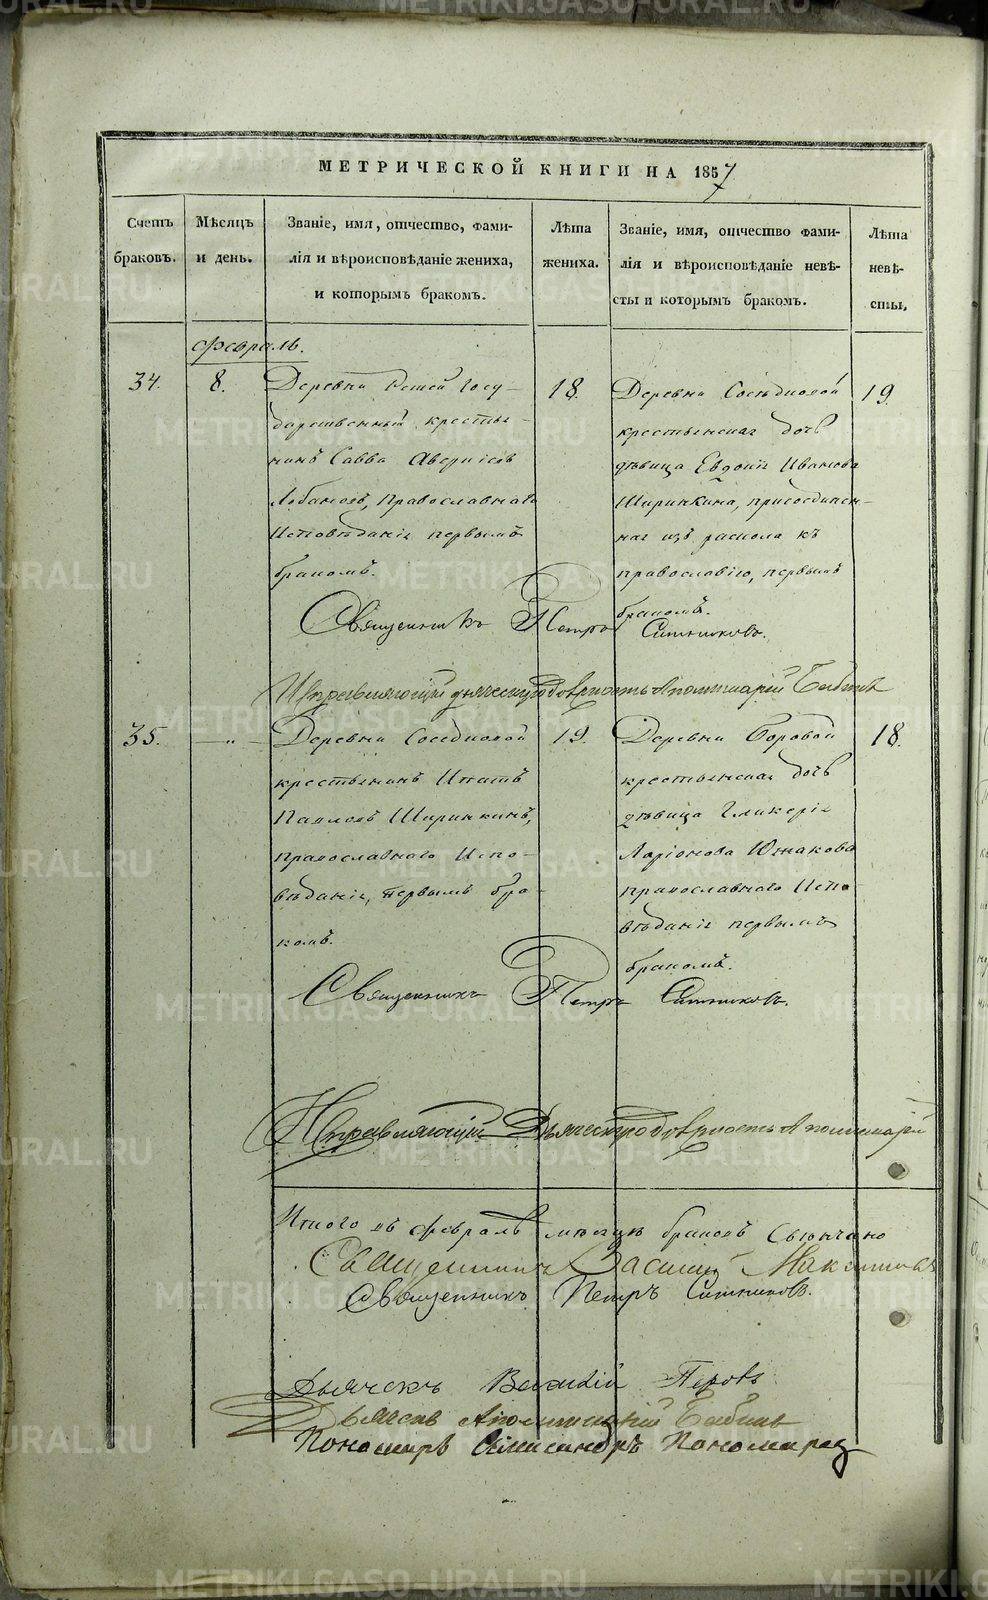 МЕТРИЧЕСКОЙ КНИГИ НА 1857
Счетъ браковъ.
Мѣсяцъ и день.
Званіе, имя, отчество, фами-
лія и вѣроисповѣданіе жениха,
и которымъ бракомъ.
Лѣта жениха.
Званіе, имя, отчество фами-
лія и вѣроисповѣданіе невѣ-
сты и которымъ бракомъ.
Лѣта невѣ-
сты.
Февраль.
34.
8.
Деревни госу-
дарственный крестья-
нинъ Савва
Лобановъ, Православнаго
Исповѣданія первымъ
бракомъ.
18
Деревни Сосѣдковой
крестьянская дочь
дѣвица Евдокія Иванова
Ширинкина, присоединен-
ная изъ раскола къ
православію, первымъ
бракомъ.
19.
Священникъ Петръ Ситниковъ.
Исправляющій должность Аполинарій Бабинъ
35.
- " -
Деревни Соседковой
крестьянинъ Игнатъ
Павловъ Ширинкинъ,
православнаго Испо-
вѣданія, первымъ бра-
комъ.
19.
Деревни Боровой
крестьянская дочь
дѣвица Гликерія
Ларіонова Южакова
православнаго Испо-
вѣданія первымъ
бракомъ.
18.
Священникъ Петръ Ситниковъ.
Исправляющій Дьяческую должность Аполинарій
Итого въ Февралѣ мѣсяцѣ браковъ свѣнчано
Священникъ Василій Максимовъ
Священникъ Петръ Ситниковъ.
Дьячекъ Василій Поповъ
Дьячекъ Аполинарій Бабинъ
Пономарь Александръ Пономарев
METRIKI.GASO-URAL.RU